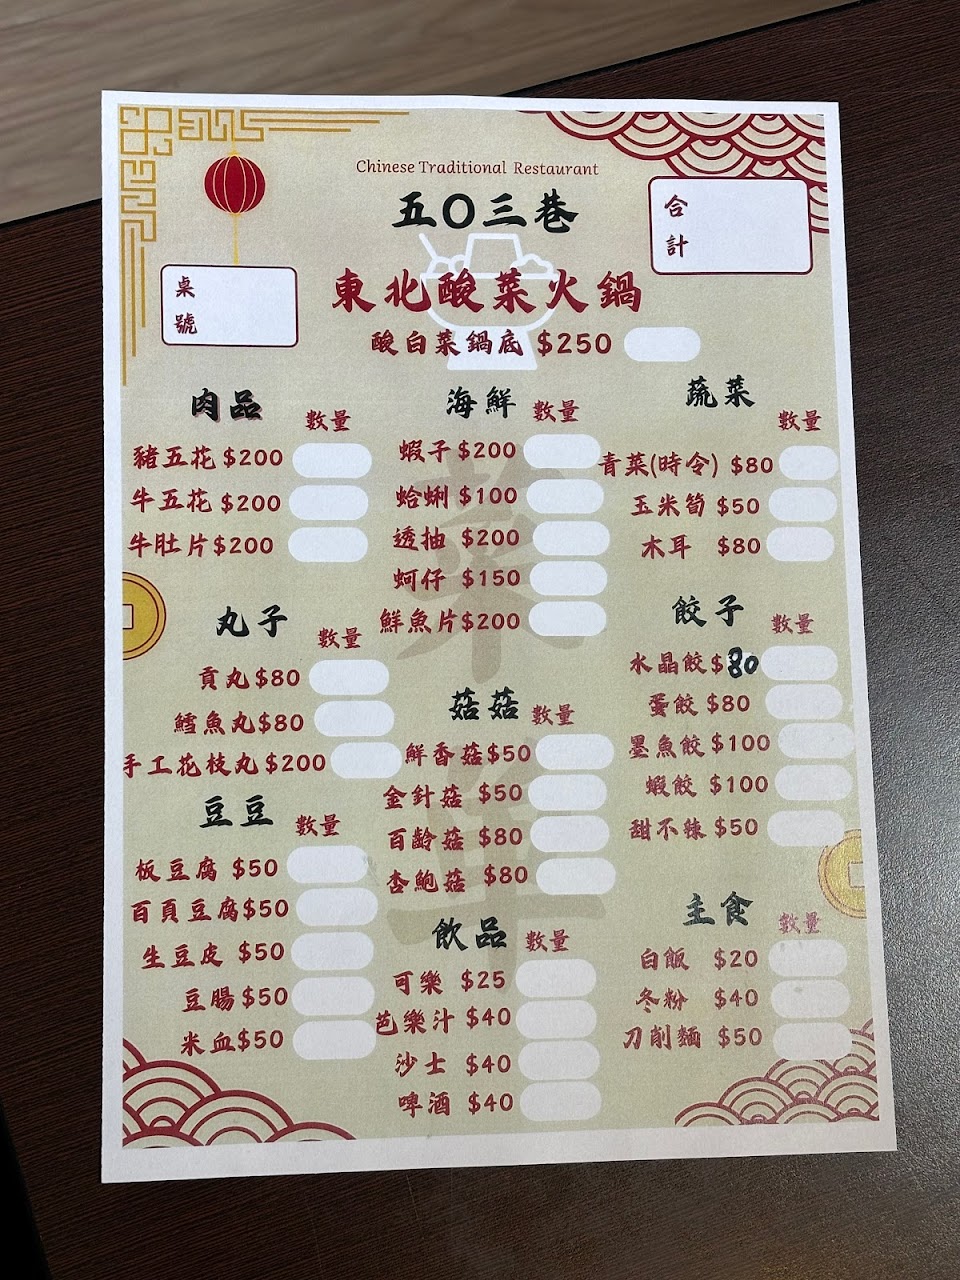 Chinese Traditional Restaurant
五〇三巷
合計
桌號
東北酸菜火鍋
酸白菜鍋底 $250
肉品 數量
豬五花 $200
牛五花 $200
牛肚片 $200
丸子 數量
貢丸 $80
鱈魚丸 $80
手工花枝丸 $200
豆豆 數量
板豆腐 $50
百頁豆腐 $50
生豆皮 $50
豆腸 $50
米血 $50
海鮮 數量
蝦子 $200
蛤蜊 $100
透抽 $200
蚵仔 $150
鮮魚片 $200
菇菇 數量
鮮香菇 $50
金針菇 $50
百齡菇 $80
杏鮑菇 $80
飲品 數量
可樂 $25
芭樂汁 $40
沙士 $40
啤酒 $40
蔬菜 數量
青菜(時令) $80
玉米筍 $50
木耳 $80
餃子 數量
水晶餃 $80
蛋餃 $80
墨魚餃 $100
蝦餃 $100
甜不辣 $50
主食 數量
白飯 $20
冬粉 $40
刀削麵 $50